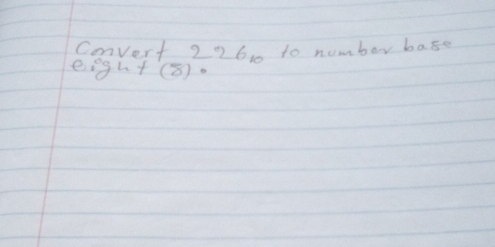 Convert 226₁₀ to number base
eight (8).